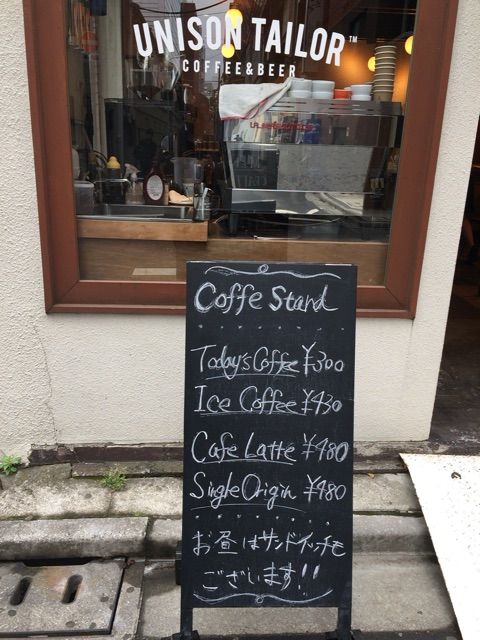 UNISON TAILOR™
COFFEE&BEER
Coffe Stand
Today's Coffee ¥300
Ice Coffee ¥430
Cafe Latte ¥480
Single Origin ¥480
お昼はサンドイッチも
ございます!!